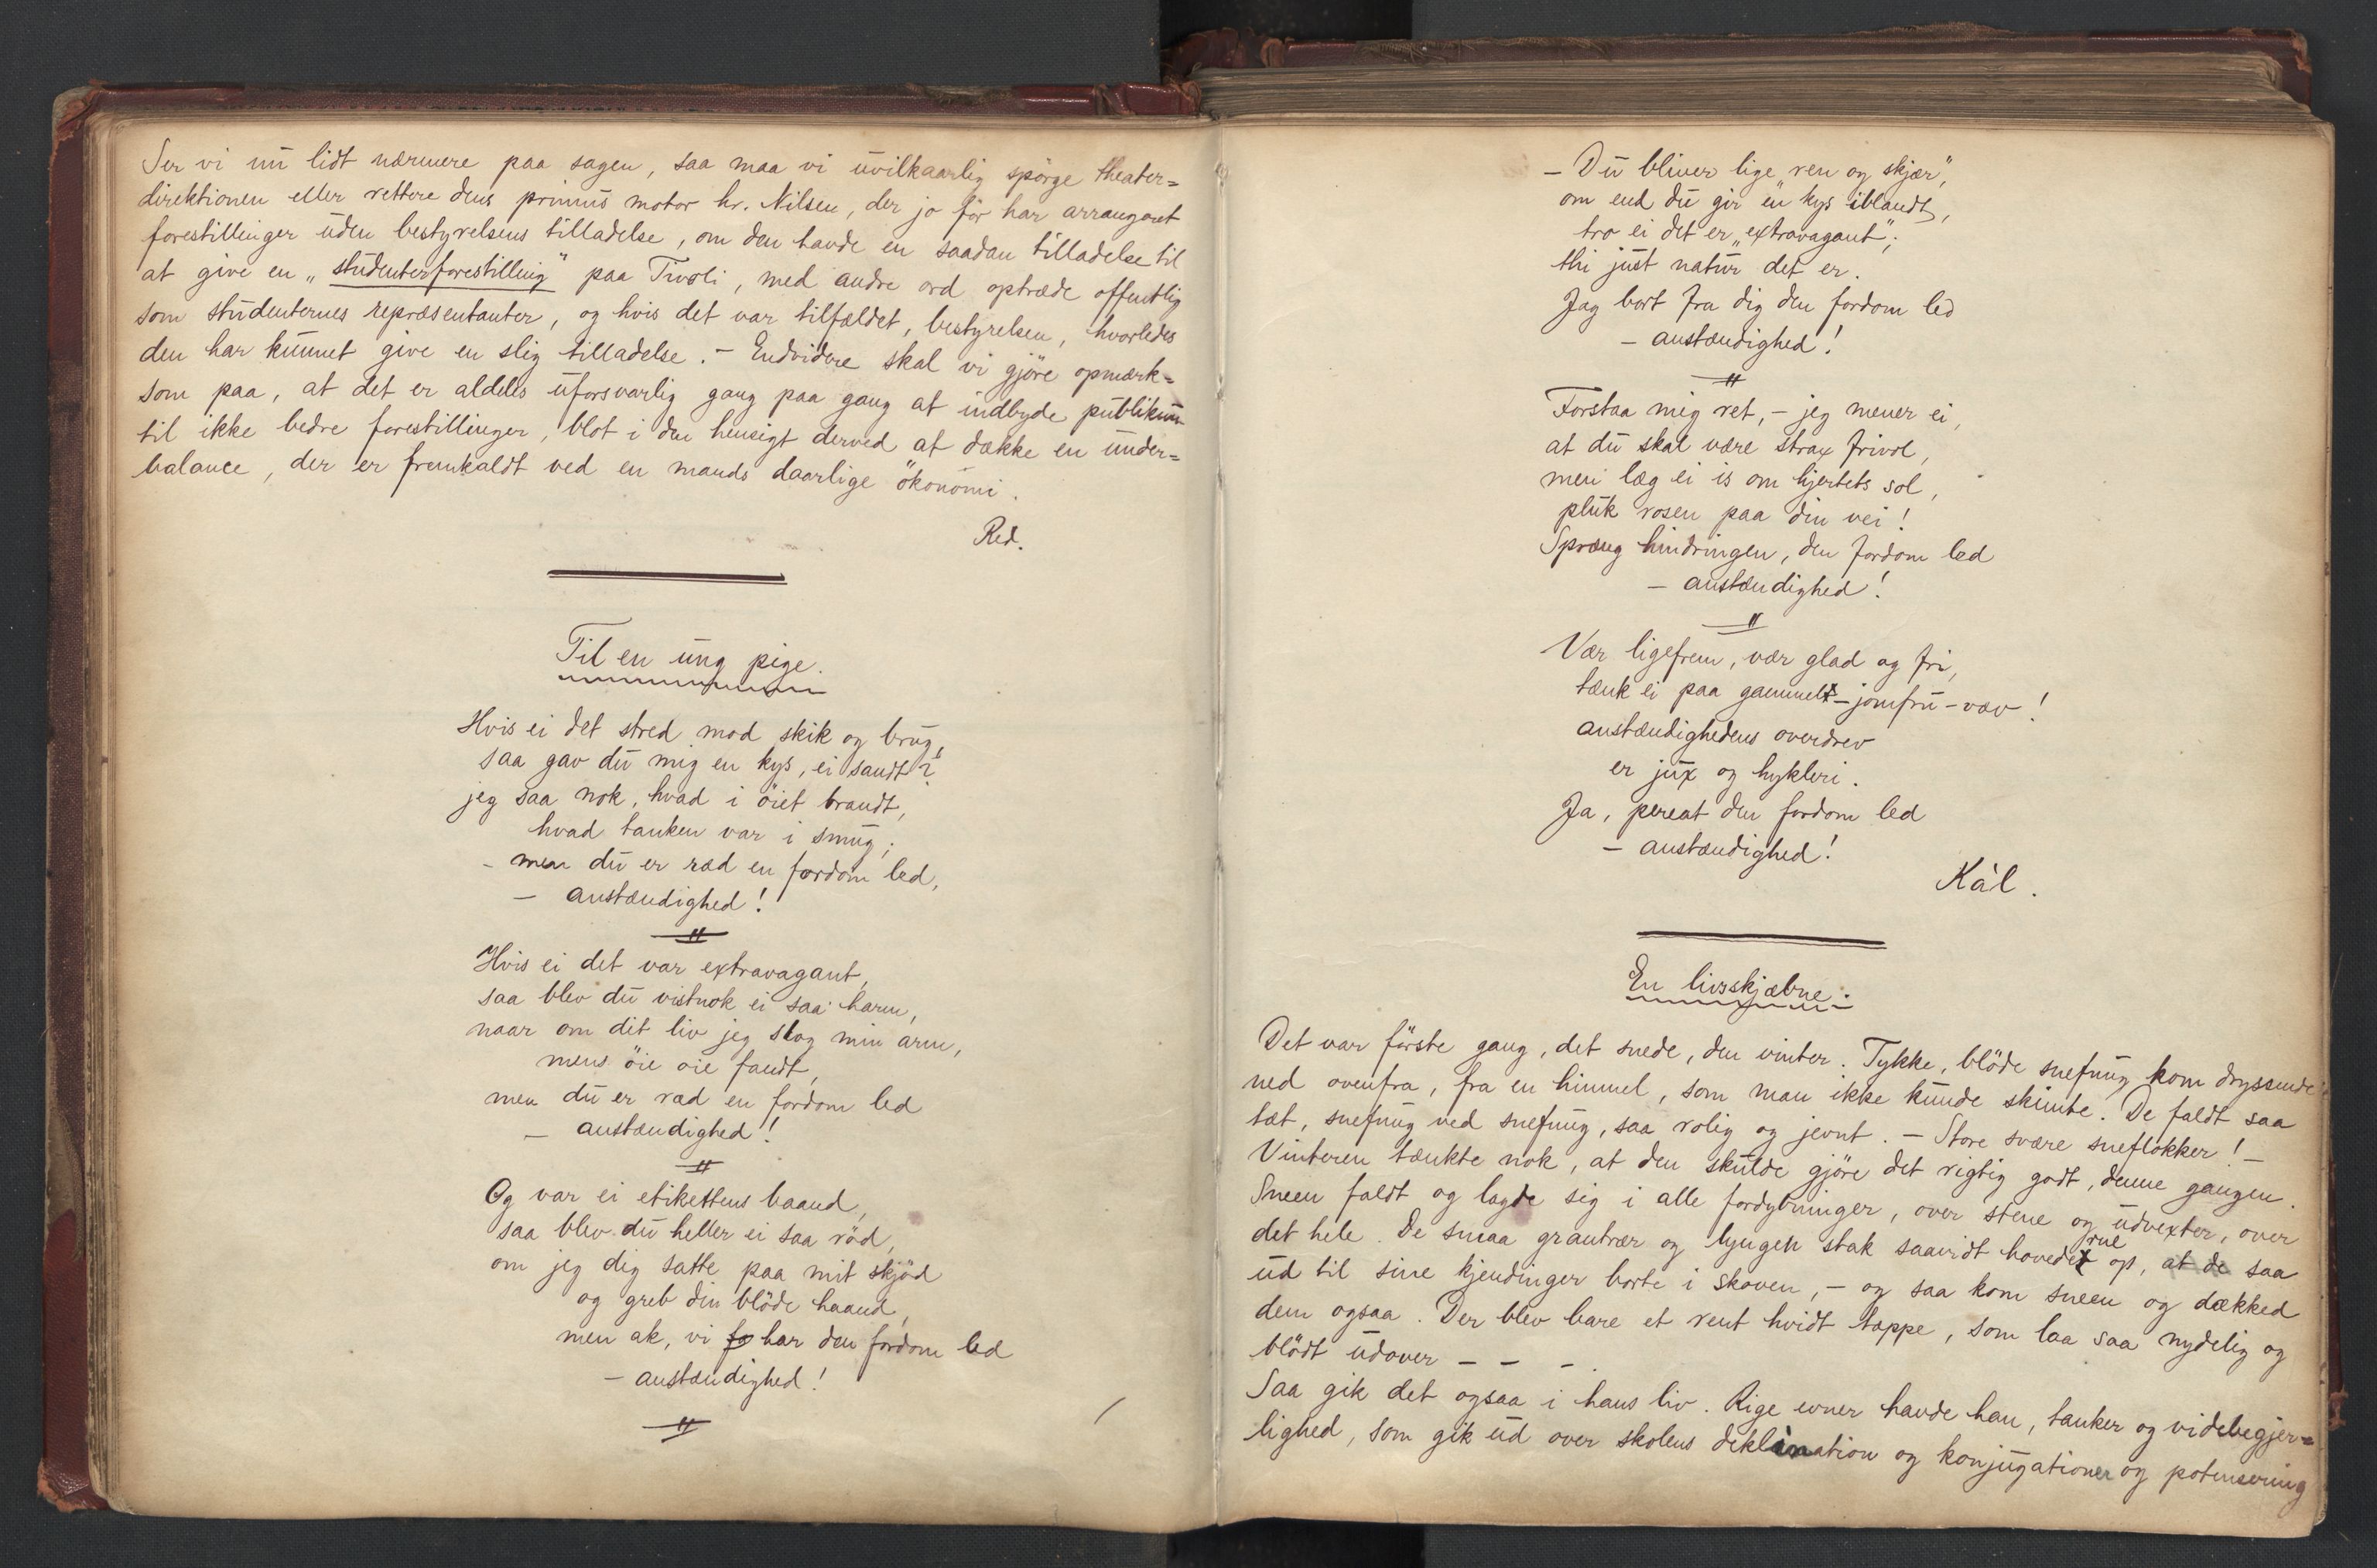 Ser vi nu lidt nærmere paa sagen, saa maa vi uvilkaarlig spörge theater=
direktionen eller rettere dens primus motor hr. Nilsen, der jo för har arrangeret
forestillinger uden bestyrelsens tilladelse, om den havde en saadan tilladelse til
at give en „studenterforestilling" paa Tivoli, med andre ord optræde offentlig
som studenternes repræsentanter, og hvis det var tilfældet, bestyrelsen, hvorledes
den har kunnet give en slig tilladelse. – Endvidere skal vi gjöre opmærk=
som paa, at det er aldeles uforsvarlig gang paa gang at indbyde publikum
til ikke bedre forestillinger, blot i den hensigt derved at dække en under=
balance, der er fremkaldt ved en mands daarlige ökonomi.
Red.
Til en ung pige.
Hvis ei det stred mod skik og brug,
saa gav du mig en kys, ei sandt?
jeg saa nok, hvad i öiet brandt,
hvad tanken var i smug;
– men du er ræd en fordom led,
– anstændighed!
Hvis ei det var extravagant,
saa blev du vistnok ei saa harm,
naar om dit liv jeg slog min arm,
mens öie öie fandt,
men du er ræd en fordom led
– anstændighed!
Og var ei etikettens baand,
saa blev du heller ei saa röd,
om jeg dig satte paa mit skjöd
og greb din blöde haand,
men ak, vi fo har den fordom led
– anstændighed!
– Du bliver lige „ren og skjær",
om end du gir en kys iblandt,
tro ei det er „extravagant";
thi just natur det er.
Jag bort fra dig den fordom led
– anstændighed!
Forstaa mig ret, – jeg mener ei,
at du skal være strax frivol,
men læg ei is om hjertets sol,
pluk rosen paa din vei!
Spræng hindringen, den fordom led
– anstændighed!
Vær ligefrem, vær glad og fri,
tænk ei paa gammel-jomfru-væv!
anstændighedens overdrev
er jux og hykleri.
Ja, pereat den fordom led
– anstændighed!
Kál.
En livsskjæbne.
Det var förste gang, det snede, den vinter. Tykke, blöde snefnug kom dryssende
ned ovenfra, fra en himmel, som man ikke kunde skimte. De faldt saa
tæt, snefnug ved snefnug, saa rolig og jevnt. – Store svære sneflokker! –
Vinteren tænkte nok, at den skulde gjöre det rigtig godt, denne gangen.
Sneen faldt og lagde sig i alle fordybninger, over stene og udvexter, over
det hele. De smaa grantrær og lyngen stak saavidt hovederne op, at de saa
ud til sine kjendinger borte i skoven, – og saa kom sneen og dækked
dem ogsaa. Der blev bare et rent hvidt tæppe, som laa saa nydelig og
blödt udover – – –.
Saa gik det ogsaa i hans liv. Rige evner havde han, tanker og videbegjer=
lighed, som gik ud over skolens deklination og konjugationer og potensering